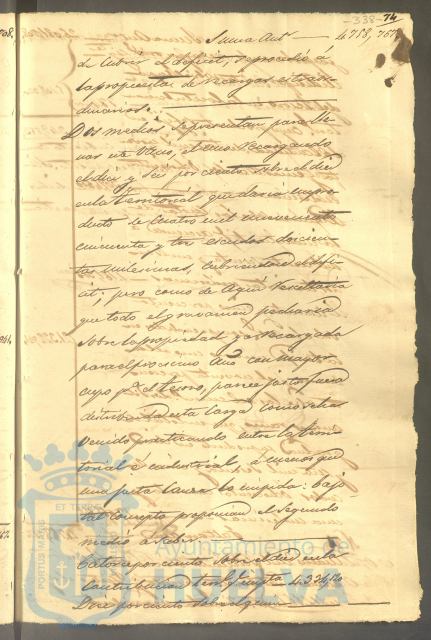 338 74
Suma Ant. 4758,757
de cubrir el deficit, se procedió á
la propuesta de recargos estraor-
dinarios.
Dos medios se presentan para lle-
nar este vacio, el uno recargando
el diez y seis por ciento sobre el diez
en la territorial que daria un pro-
ducto de Cuatro mil novecientos
cincuenta y tres escudos doscien-
tas milesimas, cubriendo el defi-
cit; pero como de aqui resultaria
que todo el gravamen pediaria
sobre la propiedad ya recargada
para el procsimo año con mayor
cupo pr. el tesoro, parece justo fuera
distribuida esta carga como se ha
venido practicando entre la terri-
torial é industrial, á menos que
una justa causa lo impida: bajo
tal concepto proponian el segundo
medio á saber.
Catorce por ciento sobre el diez en la
contribucion terr.
Doce por ciento sobre
Ayuntamiento de
HUELVA
PORTUS MARIS
ET TERRE